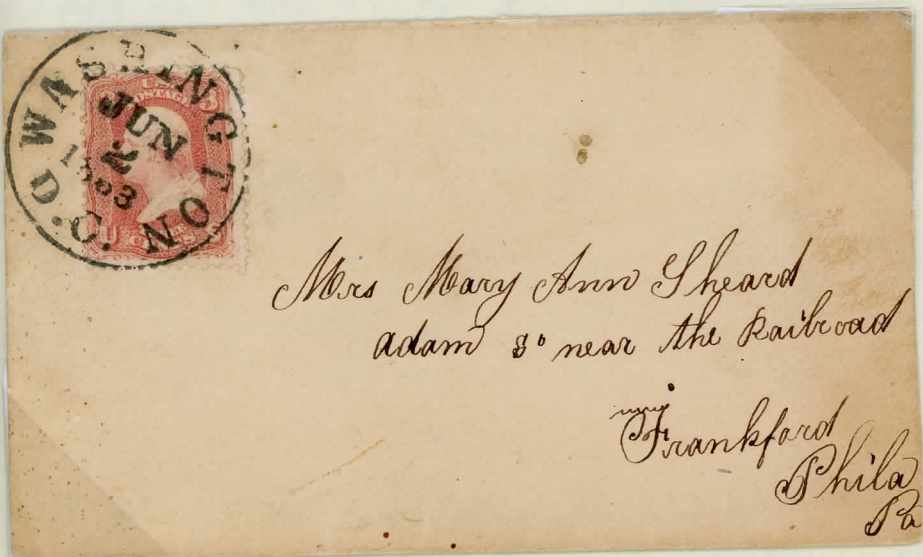 WASHINGTON D.C.
JUN
2
1863
U.S. POSTAGE
3
Mrs Mary Ann Sheard
adam st near the Railroad
Frankford
Phila
Pa